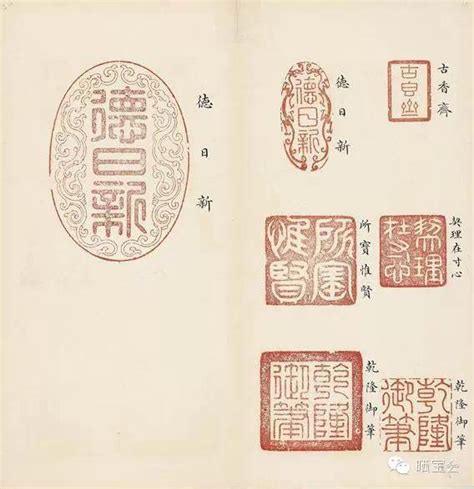 古香齋
德日新
德日新
契理在寸心
契理在寸心
所寶惟賢
所寶惟賢
乾隆御筆
乾隆御筆
乾隆御筆
乾隆御筆
德日新
德日新
晒宝会